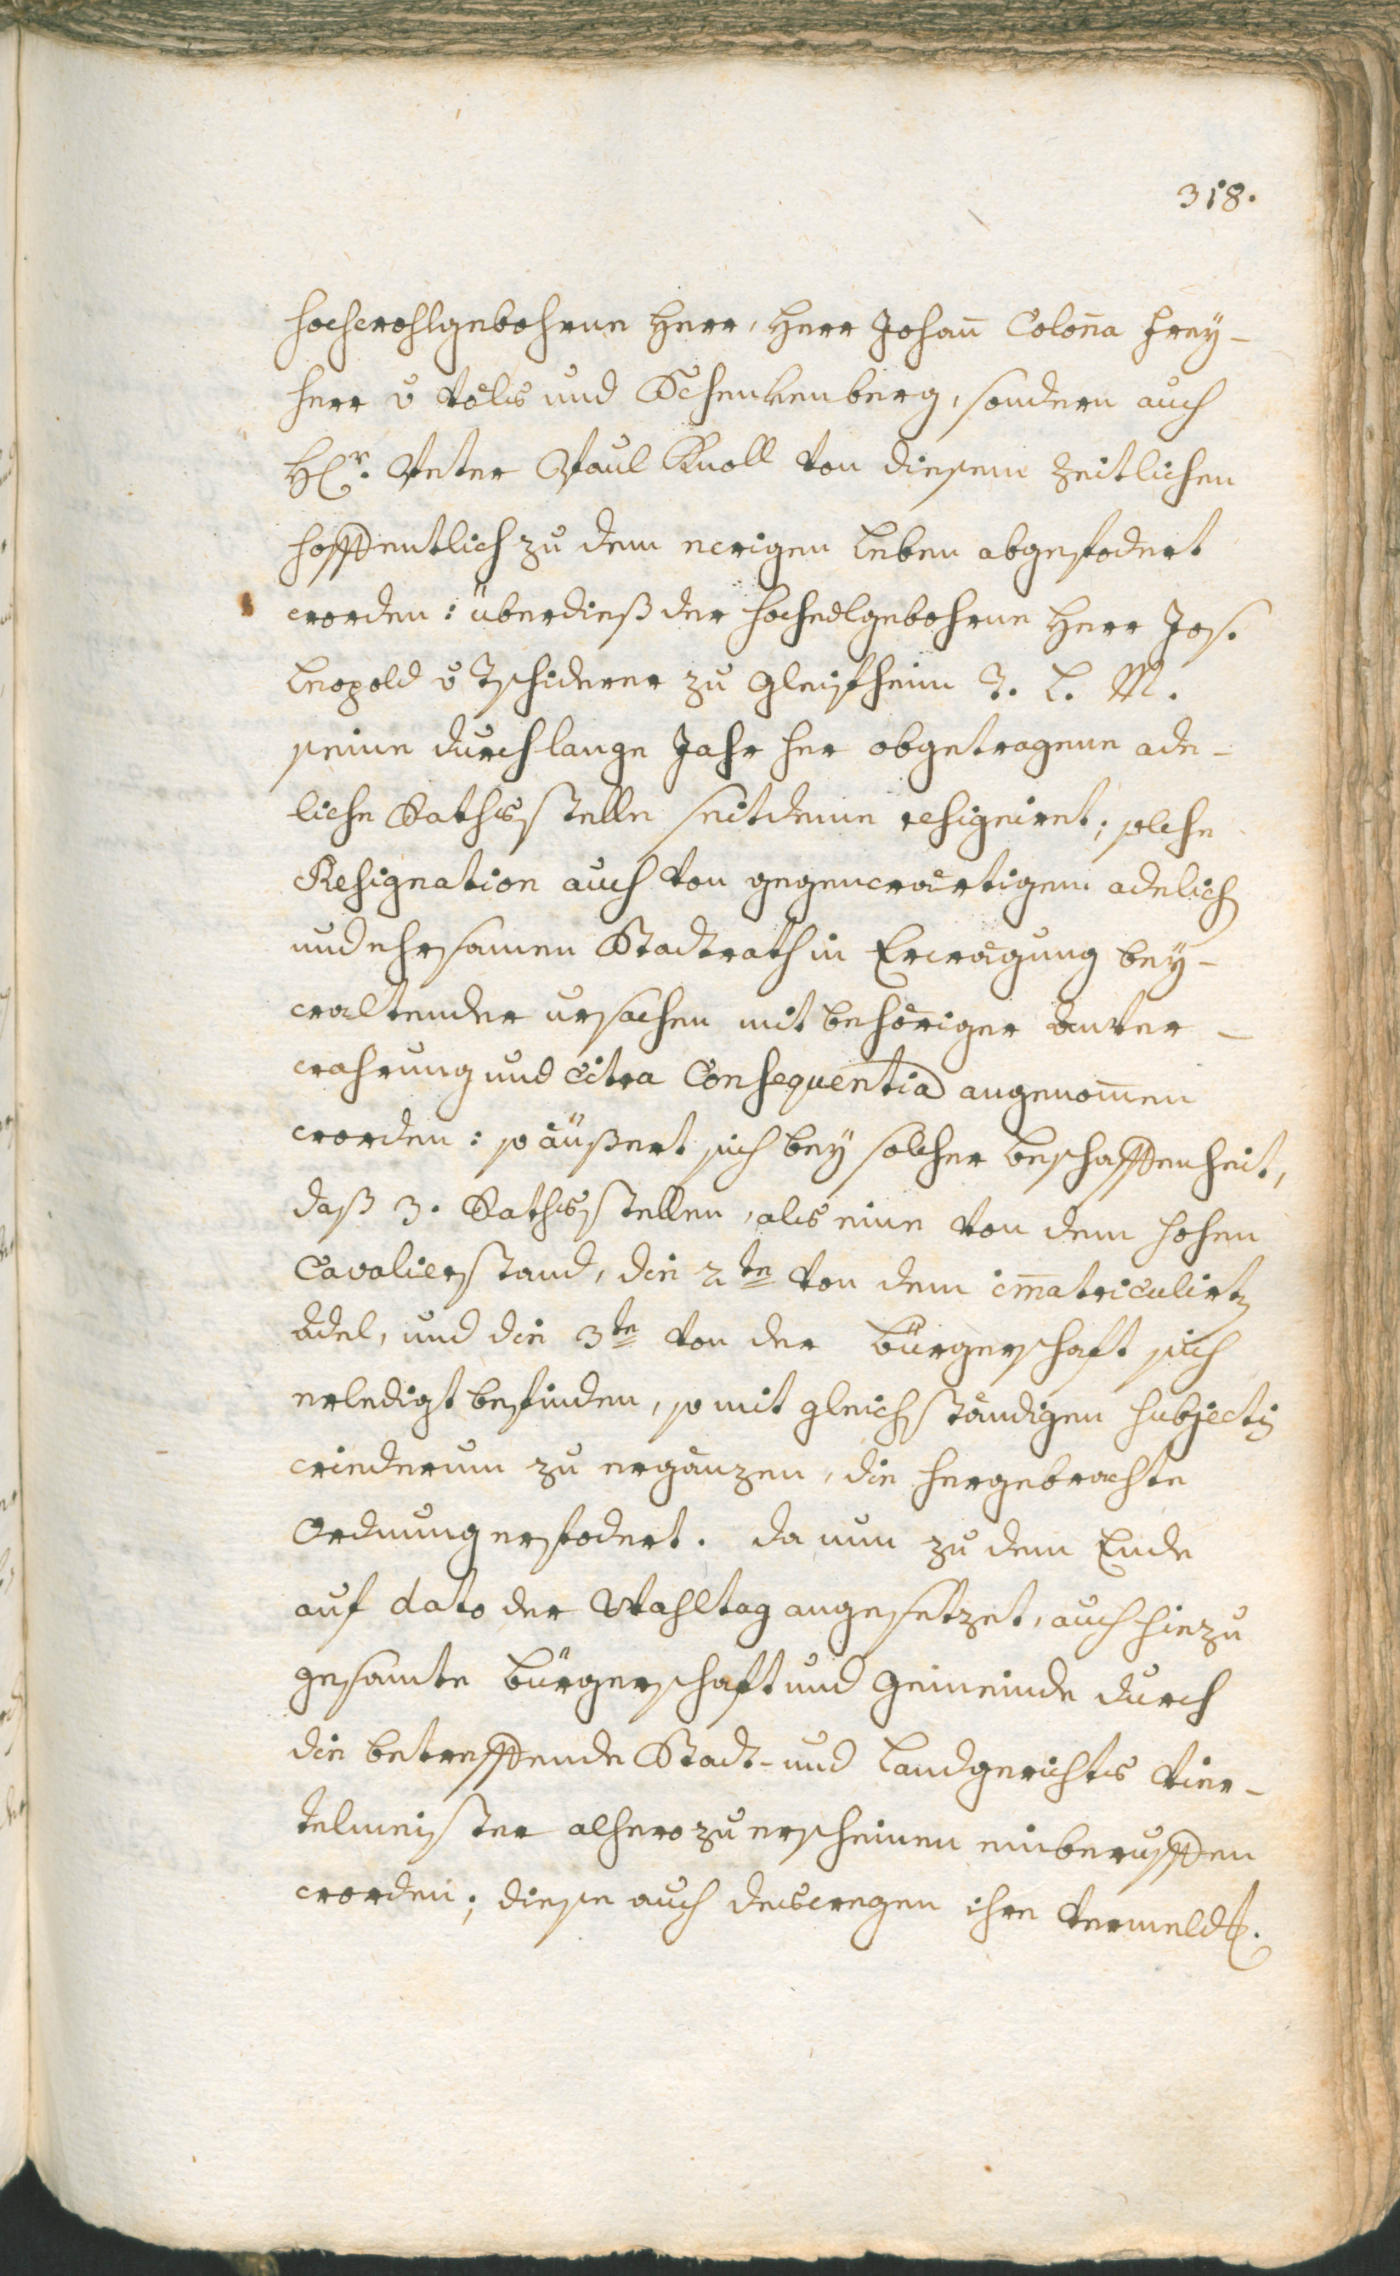 318.
hochwohlgebohrne Herr, Herr Johañ Coloña Frey-
herr v Völs und Schenkenberg, sondern auch
Hr. Peter Paul Knoll von diesem zeitlichen
hoffentlich zu dem ewigen Leben abgefodert
worden: überdieß der hochedlgebohrne Herr Jos.
Leopold v Tschiderer zu Gleifheim T. L. M.
seine durch lange Jahr her obgetragene ade-
liche Rathsstelle seitdeme resigniret; solche
Resignation auch von gegenwärtigem adelich
und ehrsamen Stadtrath in Erwägung bey-
waltender ursachen mit behöriger Anver-
wahrung und citra Consequentia angenom̄en
worden: so äußert sich bey solcher beschaffenheit,
daß 3. Rathsstellen, als eine von dem hohen
Cavalierstand, die 2te von dem im̄atriculirtn
Adel, und die 3te von der Bürgerschaft sich
erledigt befinden, so mit gleichständigen subjectis
wiederum zu ergänzen, die hergebrachte
Ordnung erfodert. Da nun zu dem Ende
auf dato der Wahltag angesetzet, auch hiezu
gesamte Bürgerschaft und Gemeinde durch
die betreffende Stadt- und Landgerichts Vier-
telmeister alhero zu erscheinen einberuffen
worden; diese auch deswegen ihre Vermeldt.